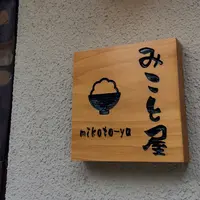 みこと屋
mikoto-ya